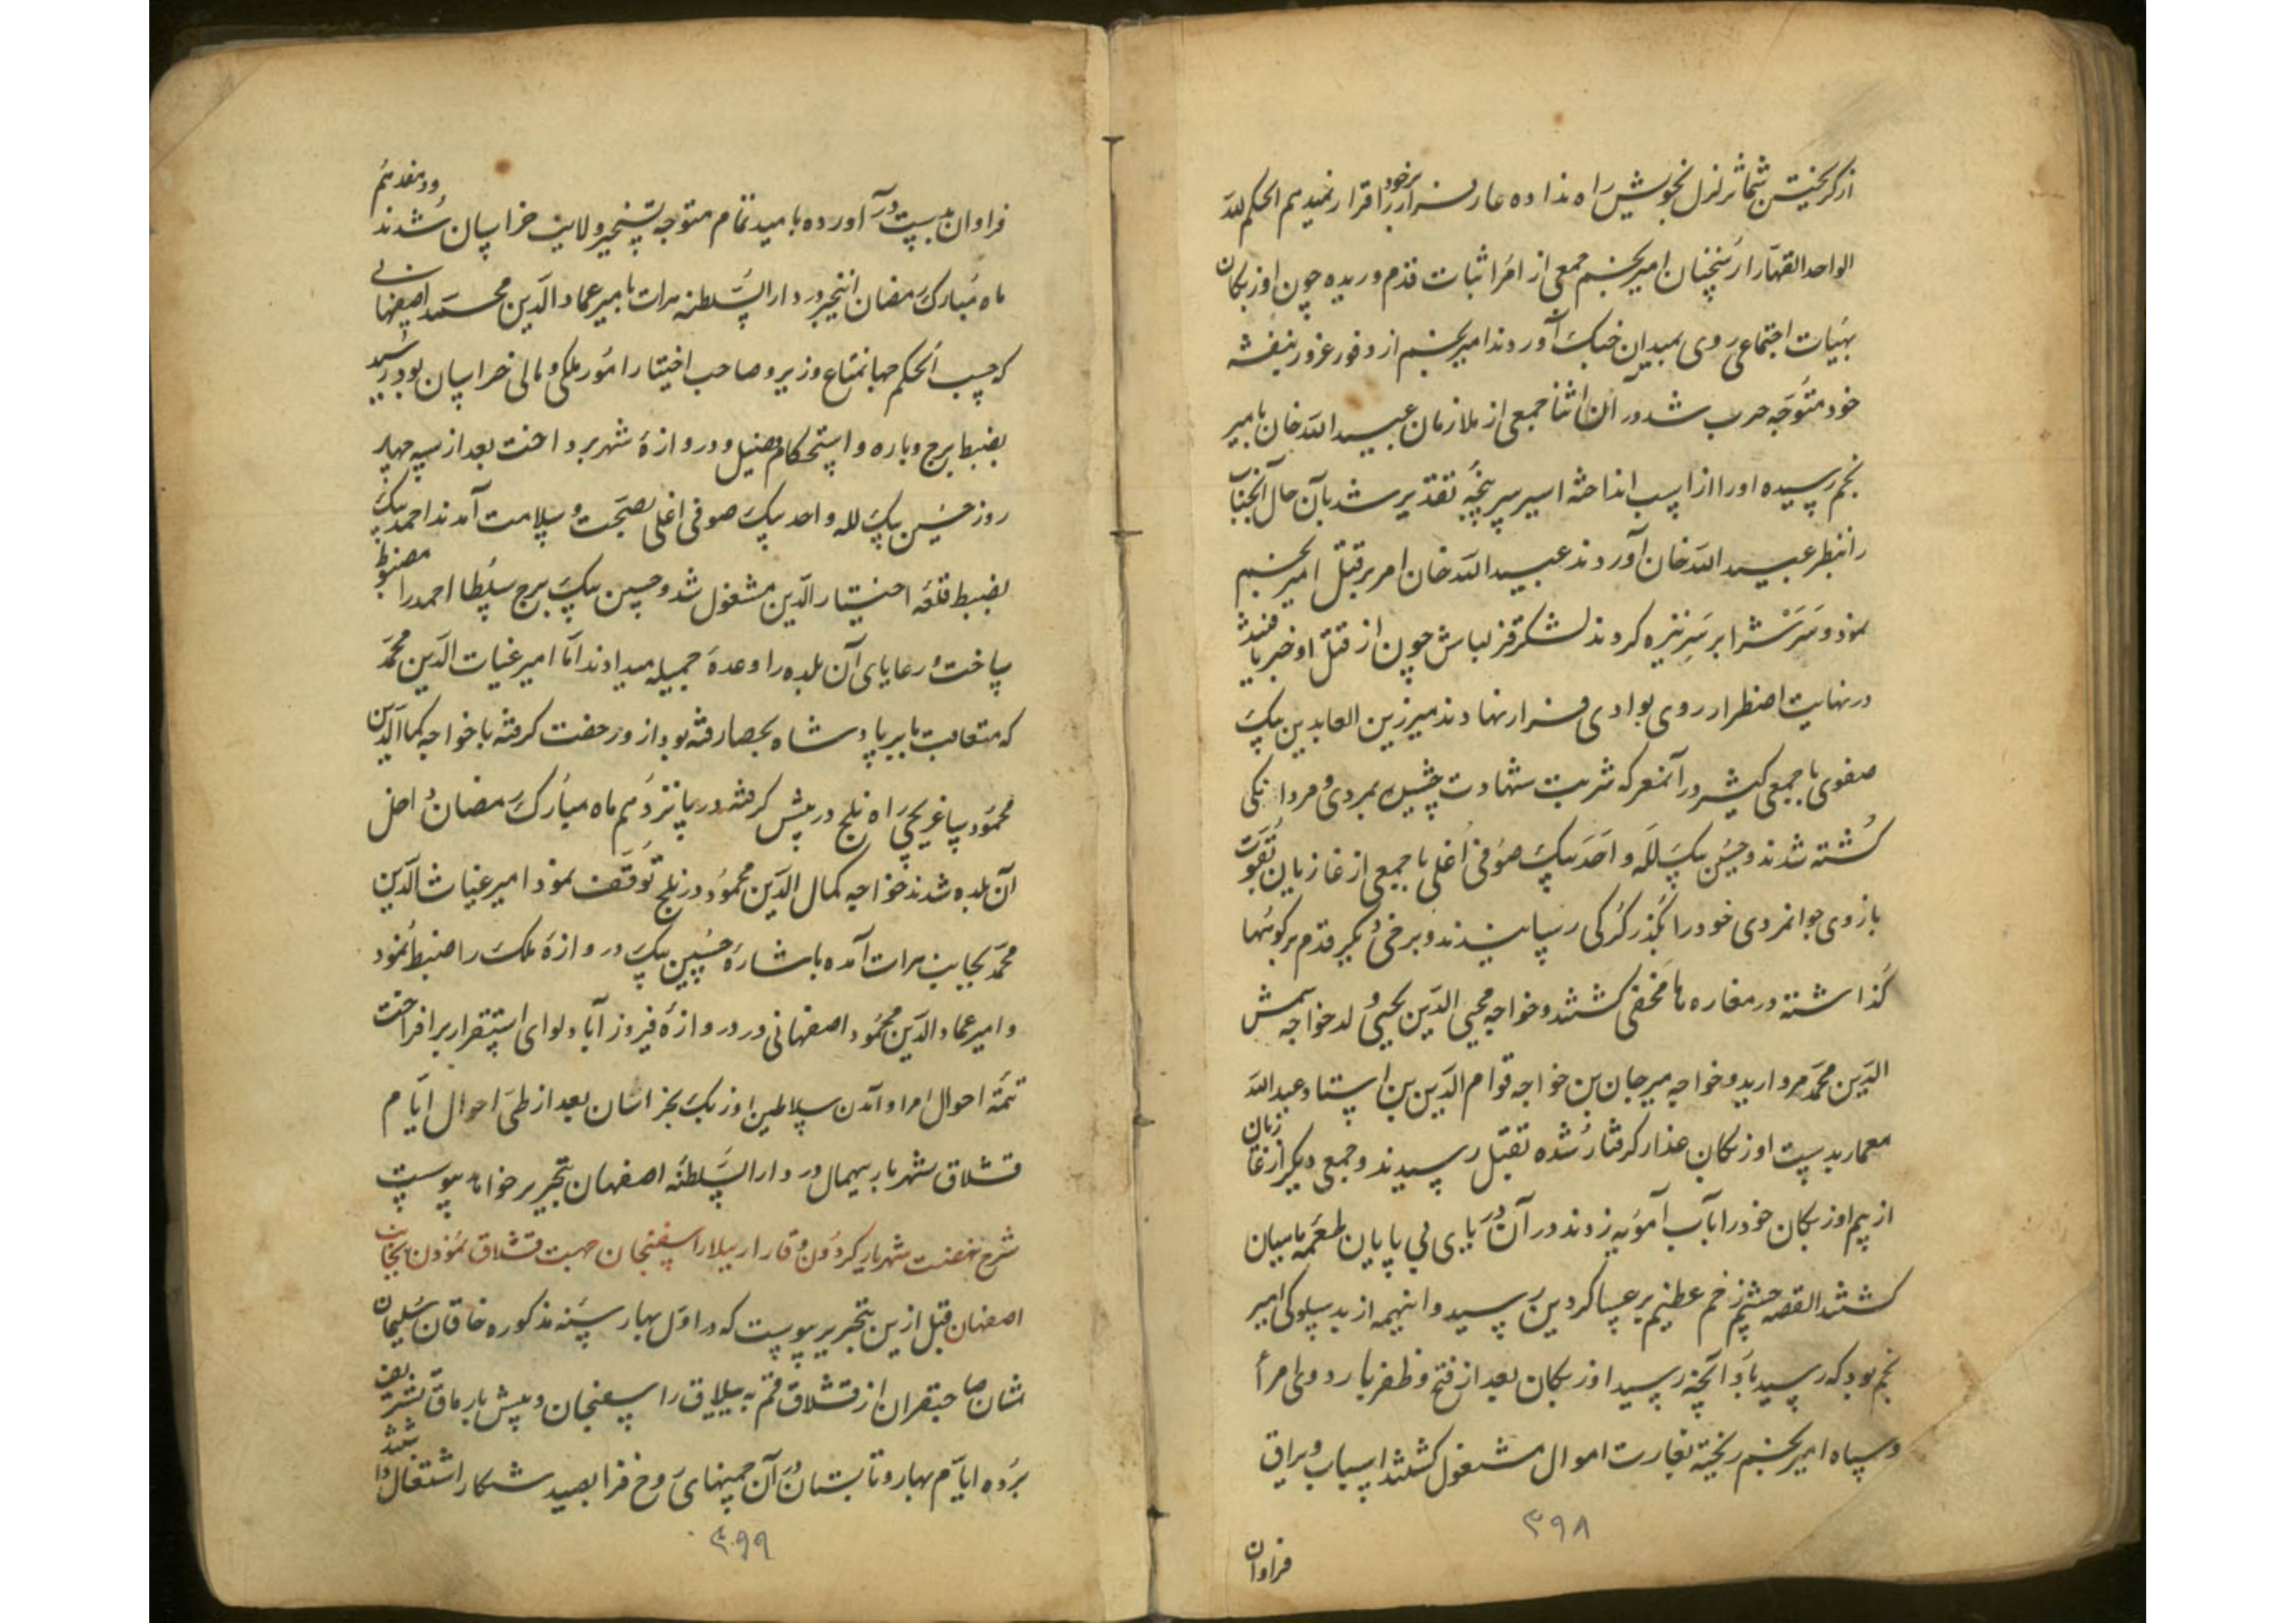 از گریختن شما تزلزل بخویش راه نداده عار فرار بر خود قرار نمیدهم الحکم لله
الواحد القهار از سخنان امیر نجم جمعی از امرا ثبات قدم ورزیده چون اوزبکان
بهیات اجتماعی روی بمیدان جنگ آوردند امیر نجم از وفور غرور بنفسه
خود متوجه حرب شد در آن اثنا جمعی از ملازمان عبید الله خان بامیر
نجم رسیده او را از اسب انداخته اسیر سرپنجه تقدیر شد بآن حال آنجناب
را بنظر عبید الله خان آوردند عبید الله خان امر بر قتل امیر نجم
نمود و سرش را بر سر نیزه کردند لشکر قزلباش چون از قتل او خبر یافتند
در نهایت اضطرار روی بوادی فرار نهادند میر زین العابدین بیک
صفوی با جمعی کثیر در آنمعرکه شربت شهادت چشیده بمردی و مردانگی
کشته شدند و حسین بیک لله و احد بیک صوفی اغلی با جمعی از غازیان بقوت
بازوی جوانمردی خود را بگذر کرکی رسانیدند و برخی دیگر قدم بر کوهها
گذاشته در مغاره ها مخفی گشتند و خواجه محیی الدین یحیی ولد خواجه شمس
الدین محمد مروارید و خواجه میر جان بن خواجه قوام الدین بن استاد عبد الله
معمار بدست اوزبکان غدار گرفتار شده بقتل رسیدند و جمعی دیگر از غازیان
از بیم اوزبکان خود را بآب آمویه زدند در آن دریای بی پایان طعمه ماهیان
گشتند القصه چشم زخم عظیم بر عساکر دین رسید و اینهمه از بد سلوکی امیر
نجم بود که رسید باو آنچه رسید اوزبکان بعد از فتح و ظفر باردوی امرا
و سپاه امیر نجم ریخته بغارت اموال مشغول گشتند اسباب و یراق
۳۹۸
فراوان
فراوان بدست در آورده بامید تمام متوجه تسخیر ولایت خراسان شدند و در هفدهم
ماه مبارک رمضان اینخبر در دار السلطنه هرات بامیر عماد الدین محمد اصفهانی
که حسب الحکم جهانمطاع وزیر و صاحب اختیار امور ملکی و مالی خراسان بود رسید
بضبط برج و باره و استحکام فصیل و دروازهٔ شهر پرداخت بعد از سه چهار
روز حسین بیک لله و احد بیک صوفی اغلی بصحت و سلامت آمدند احمد بیک
بضبط قلعه اختیار الدین مشغول شد و حسین بیک برج سلطا احمد را مضبوط
ساخت و رعایای آن بلده را وعدهٔ جمیله میدادند اما امیر غیاث الدین محمد
که متعاقب بابر پادشاه بحصار رفته بود از و رخصت گرفته با خواجه کمال الدین
محمود ساغرچی راه بلخ در پیش گرفته در پانزدهم ماه مبارک رمضان داخل
آن بلده شدند خواجه کمال الدین محمود در بلخ توقف نمود امیر غیاث الدین
محمد بجانب هرات آمده باشارهٔ حسین بیک دروازهٔ ملک را ضبط نمود
و امیر عماد الدین محمود اصفهانی در دروازهٔ فیروز آباد لوای استقرار برافراخت
تتمه احوال امرا و آمدن سلاطین اوزبک بخراسان بعد از طی احوال ایام
قشلاق شهریار بیهمال در دار السلطنه اصفهان بتحریر خواهد پیوست
شرح نهضت شهریار گردون وقار از ییلاق اسفنجان جهت قشلاق نمودن بجانب
اصفهان قبل ازین بتحریر پیوست که در اول بهار سنه مذکوره خاقان سلیمان
شان صاحبقران از قشلاق قم به ییلاق اسفنجان و پیش بارماق تشریف
برده ایام بهار و تابستان در آن چمنهای روح فزا بصید شکار اشتغال داشتند
۳۹۹